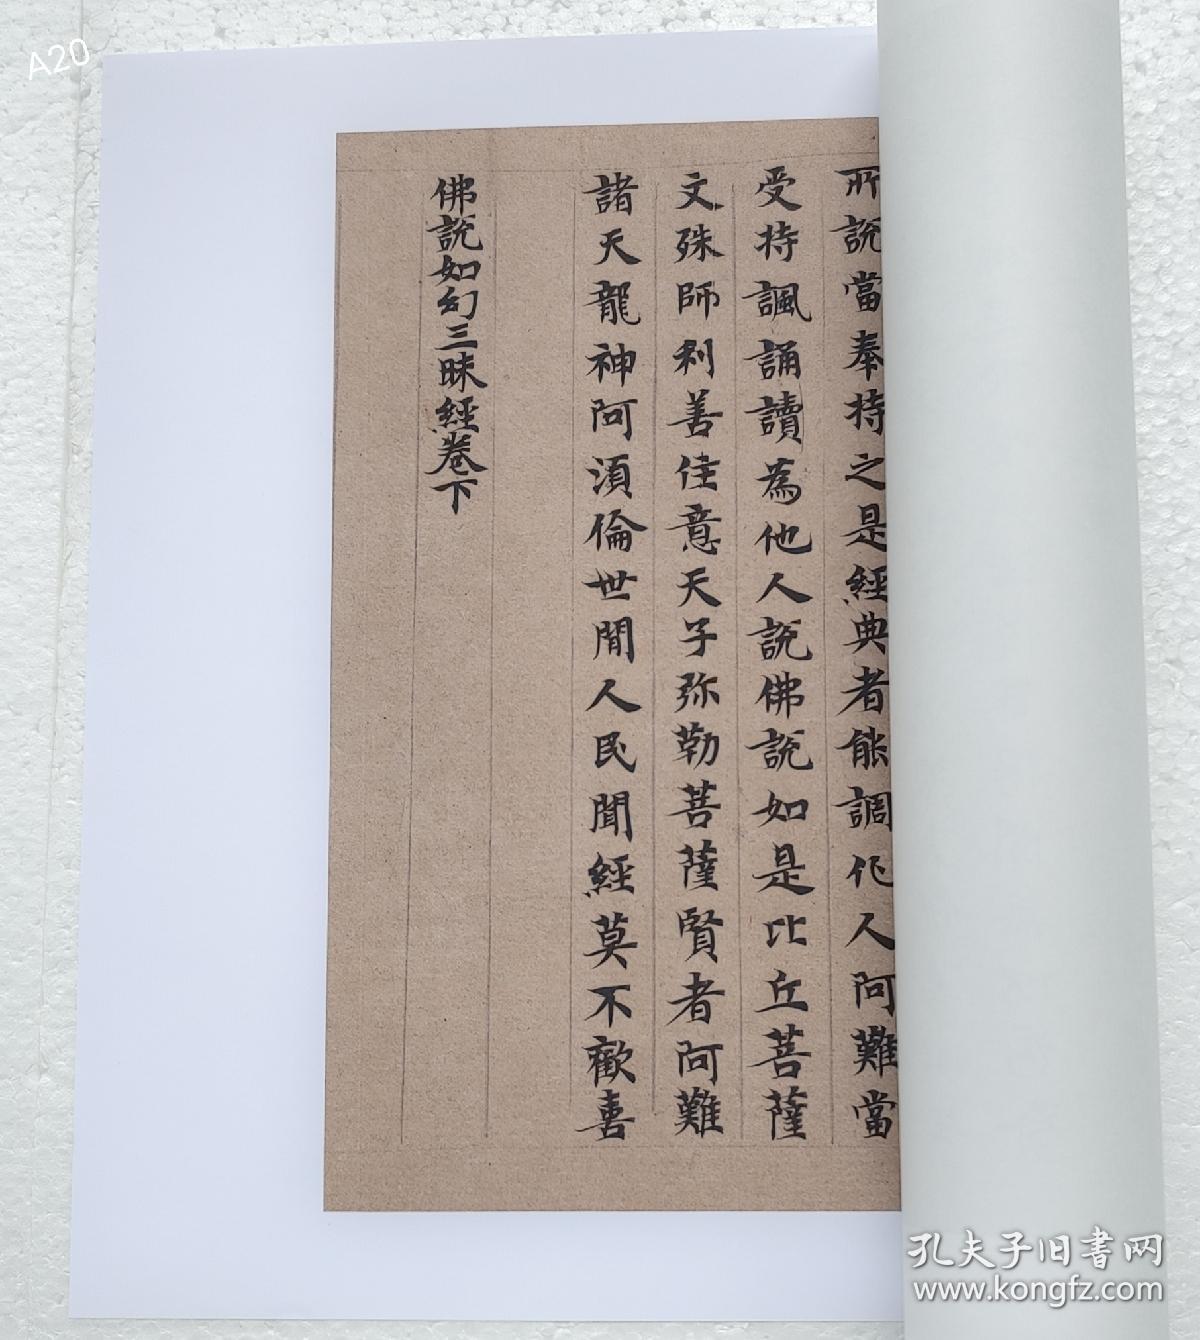 所說當奉持之是經典者能調化人阿難當
受持諷誦讀為他人說佛說如是比丘菩薩
文殊師利善住意天子弥勒菩薩賢者阿難
諸天龍神阿須倫世間人民聞經莫不歡喜
佛說如幻三昧經卷下
A20
孔夫子旧書网
www.kongfz.com